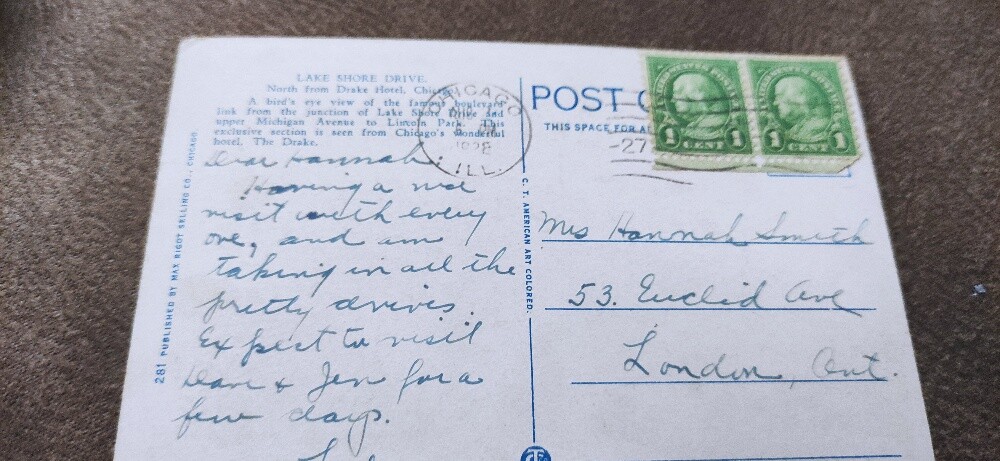 LAKE SHORE DRIVE.
North from Drake Hotel, Chicago
A bird's eye view of the famous boulevard
link from the junction of Lake Shore Drive and
upper Michigan Avenue to Lincoln Park. This
exclusive section is seen from Chicago's wonderful
hotel, The Drake.
Dear Hannah.
Having a nice
visit with every
one, and am
taking in all the
pretty drives.
Expect to visit
Dave & Jen for a
few days.
281 PUBLISHED BY MAX RIGOT SELLING CO., CHICAGO.
C. T. AMERICAN ART COLORED.
CHICAGO
ILL.
POST C
THIS SPACE FOR
-27
1 CENT 1
1 CENT 1
Mrs Hannah Smith
53. Euclid Ave
London, Ont.